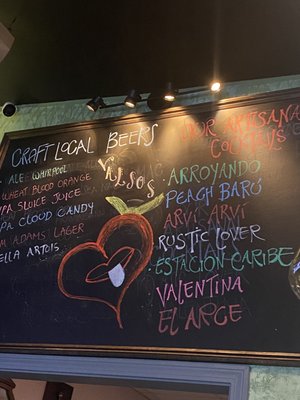 CRAFT LOCAL BEERS
ALE WHIRLPOOL
WHEAT BLOOD ORANGE
PA SLUICE JUICE
PA CLOUD CANDY
M ADAMS LAGER
ELLA ARTOIS
YULSO'S
ARTESANA
COCTELYS
ARROYANDO
PEACH BARÚ
ARVÍ ARVÍ
RUSTIC LOVER
ESTACIÓN CARIBE
VALENTINA
EL ARCE